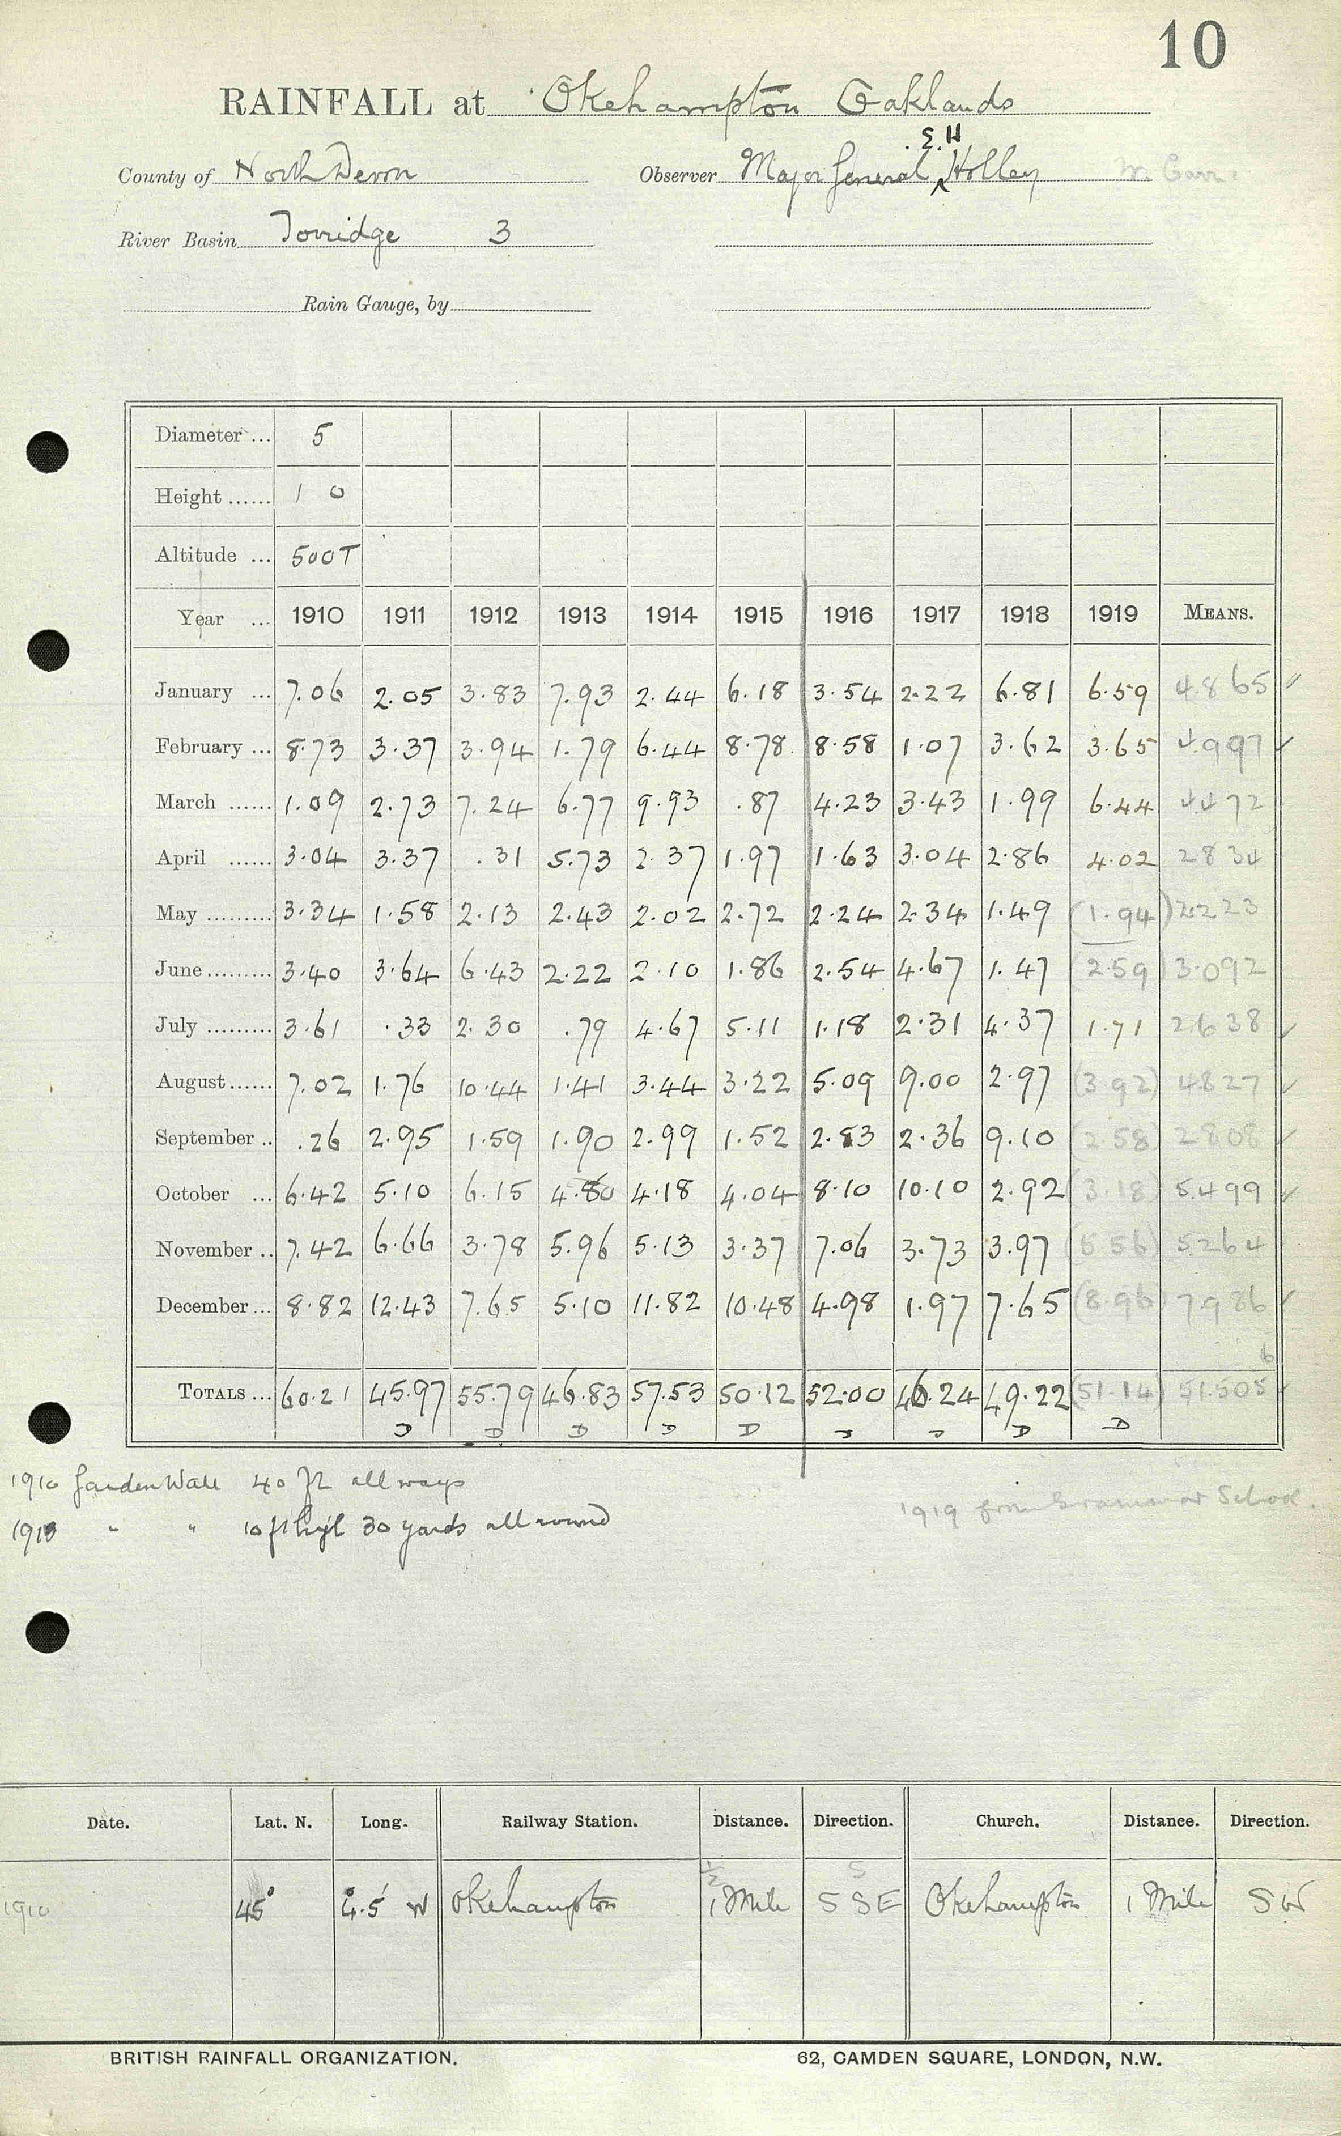 10
RAINFALL at Okehampton Oaklands
E.H
County of North Devon Observer Major General ^ Holley
River Basin Torridge 3
Rain Gauge, by
Diameter ... 5
Height ...... 1 0
Altitude ... 500T
Year ... 1910 1911 1912 1913 1914 1915 1916 1917 1918 1919 MEANS.
January ... 7.06 2.05 3.83 7.93 2.44 6.18 3.54 2.22 6.81 6.59 4.865
February ... 8.73 3.37 3.94 1.79 6.44 8.78 8.58 1.07 3.62 3.65 4.997
March ...... 1.09 2.73 7.24 6.77 9.93 .87 4.23 3.43 1.99 6.44 4.472
April ...... 3.04 3.37 .31 5.73 2.37 1.97 1.63 3.04 2.86 4.02 2834
May ......... 3.34 1.58 2.13 2.43 2.02 2.72 2.24 2.34 1.49 (1.94) 2.223
June ......... 3.40 3.64 6.43 2.22 2.10 1.86 2.54 4.67 1.47 (2.59) 3.092
July ......... 3.61 .33 2.30 .79 4.67 5.11 1.18 2.31 4.37 1.71 2.638
August ...... 7.02 1.76 10.44 1.41 3.44 3.22 5.09 9.00 2.97 (3.92) 4.827
September .. .26 2.95 1.59 1.90 2.99 1.52 2.83 2.36 9.10 (2.58) 2.808
October ... 6.42 5.10 6.15 4.80 4.18 4.04 8.10 10.10 2.92 (3.18) 5.499
November .. 7.42 6.66 3.78 5.96 5.13 3.37 7.06 3.73 3.97 (5.56) 5.264
December ... 8.82 12.43 7.65 5.10 11.82 10.48 4.98 1.97 7.65 (8.96) 7.986
6
TOTALS ... 60.21 45.97 55.79 46.83 57.53 50.12 52.00 46.24 49.22 (51.14) 51.505
D D D D D D D D D
1910 Garden Wall 40 ft all ways
1919 from Grammar School.
1913 " " 10 ft high 30 yards all round
Date. Lat. N. Long. Railway Station. Distance. Direction. Church. Distance. Direction.
1/2 S
1910 45° 4.5' W Okehampton 1 Mile SSE Okehampton 1 Mile SW
BRITISH RAINFALL ORGANIZATION. 62, CAMDEN SQUARE, LONDON, N.W.